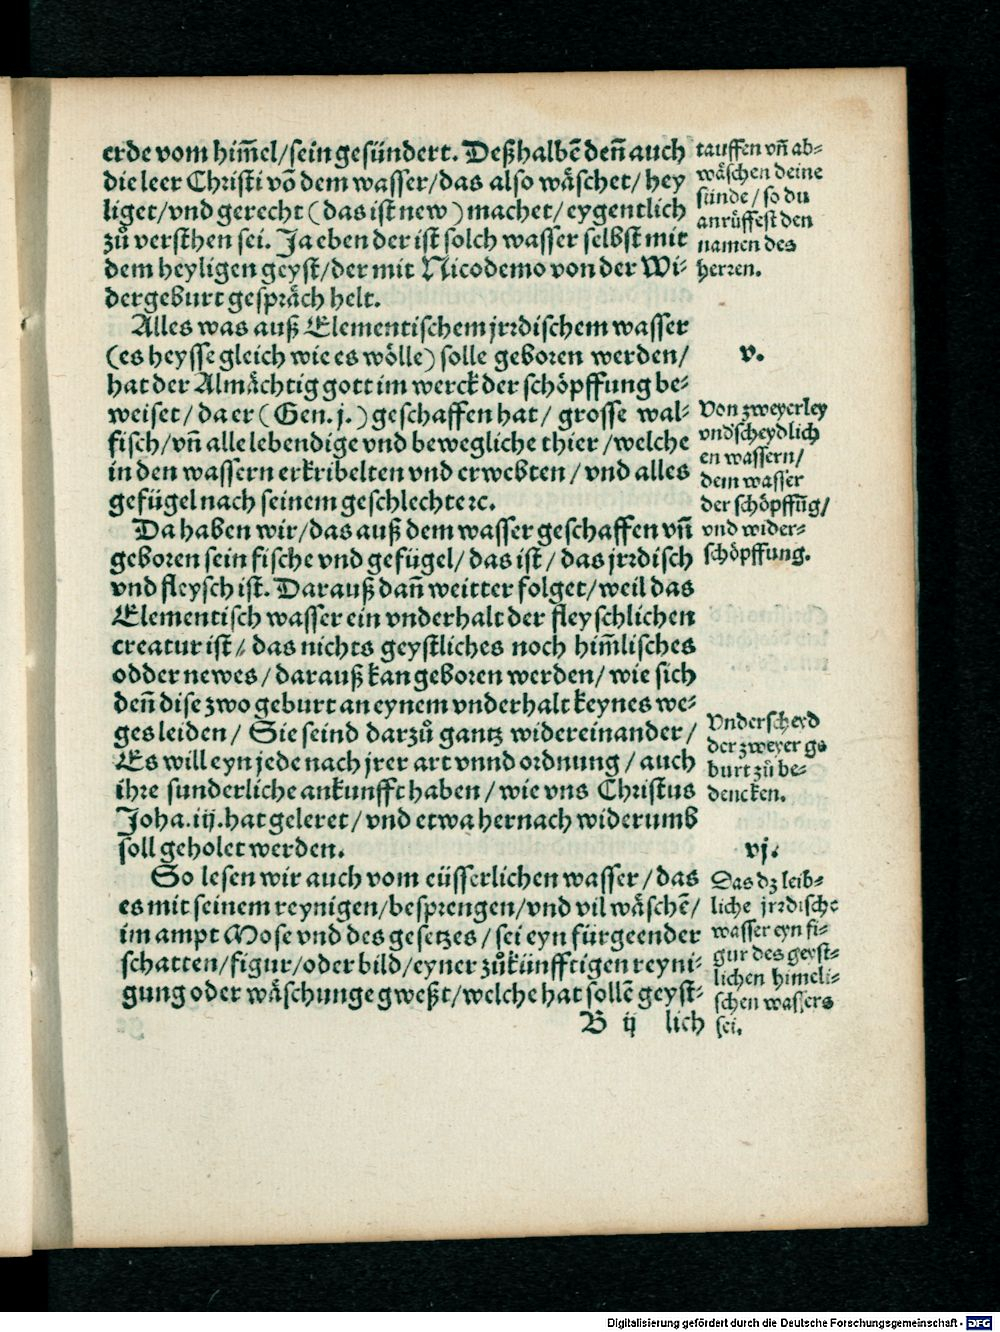 erde vom him̃el/sein gesündert. Deßhalbẽ den̄ auch
die leer Christi võ dem wasser/das also wäschet/ hey
liget/vnd gerecht (das ist new) machet/ eygentlich
zů versthen sei. Ja eben der ist solch wasser selbst mit
dem heyligen geyst/der mit Nicodemo von der Wi⸗
dergeburt gespräch helt.
Alles was auß Elementischem jrrdischem wasser
(es heysse gleich wie es wölle) solle geboren werden/
hat der Almächtig gott im werck der schöpffung be⸗
weiset/ da er (Gen. j.) geschaffen hat/ grosse wal⸗
fisch/vñ alle lebendige vnd bewegliche thier/welche
in den wassern erkribelten vnd erwebten/ vnd alles
gefügel nach seinem geschlechte ꝛc.
Da haben wir/das auß dem wasser geschaffen vñ
geboren sein fische vnd gefügel/ das ist/ das jrrdisch
vnd fleysch ist. Darauß dañ weitter folget/weil das
Elementisch wasser ein vnderhalt der fleyschlichen
creatur ist/ das nichts geystliches noch him̃lisches
odder newes/ darauß kan geboren werden/ wie sich
den̄ dise zwo geburt an eynem vnderhalt keynes we⸗
ges leiden/ Sie seind darzů gantz widereinander/
Es will eyn jede nach jrer art vnnd ordnung/ auch
ihre sunderliche ankunfft haben/ wie vns Christus
Joha. iij. hat geleret/ vnd etwa hernach widerumb
soll geholet werden.
So lesen wir auch vom eüsserlichen wasser/ das
es mit seinem reynigen/besprengen/vnd vil wäschẽ/
im ampt Mose vnd des gesetzes/ sei eyn fürgeender
schatten/figur/oder bild/eyner zůkünfftigen reyni⸗
gung oder wäschunge gweßt/welche hat sollẽ geyst⸗
B ij lich
tauffen vñ ab⸗
wäschen deine
sünde/ so du
anrüffest den
namen des
herren.
v.
Von zweyerley
vndscheydlich
en wassern/
dem wasser
der schöpffũg/
vnd wider⸗
schöpffung.
Vnderscheyd
der zweyer ge
burt zů be⸗
dencken.
vj.
Das dz leib⸗
liche jrrdische
wasser eyn fi⸗
gur des geyst⸗
lichen himeli⸗
schen wassers
sei.
Digitalisierung gefördert durch die Deutsche Forschungsgemeinschaft - DFG